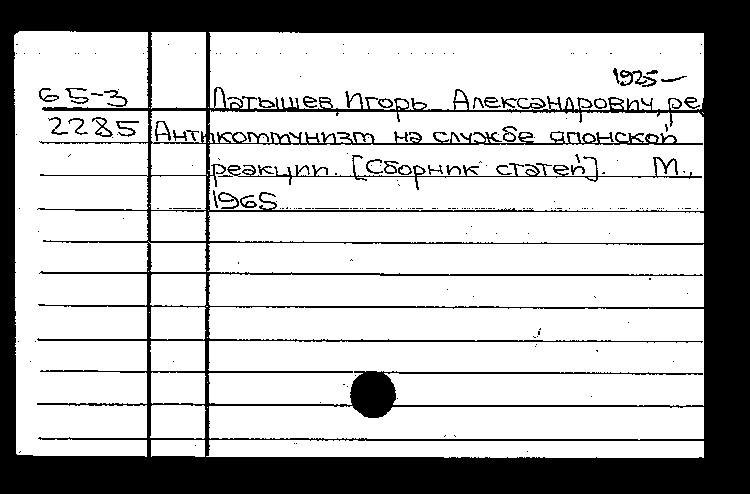 1925-
65-3 Латышев, Игорь Александрович, ре
2285 Антикоммунизм на службе японской
реакции. [Сборник статей]. М.,
1965